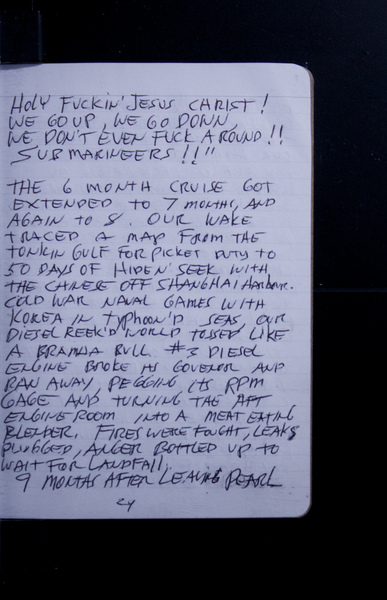 HOLY FUCKIN' JESUS CHRIST!
WE GO UP, WE GO DOWN,
WE DON'T EVEN FUCK AROUND!!
SUBMARINEERS!!!!
THE 6 MONTH CRUISE GOT
EXTENDED TO 7 MONTHS, AND
AGAIN TO 8. OUR WAKE
TRACED A MAP FROM THE
TONKIN GULF FOR PICKET DUTY TO
50 DAYS OF HIDEN' SEEK WITH
THE CHINESE OFF SHANGHAI Harbour.
COLD WAR NAVAL GAMES WITH
KOREA IN TYPHOON'D SEAS, OUR
DIESEL REEK'D WORLD TOSSED LIKE
A BRAMHA BULL. #3 DIESEL
ENGINE BROKE ITS GOVENOR AND
RAN AWAY, PEGGING ITS RPM
GAGE AND TURNING THE AFT
ENGINE ROOM INTO A MEAT EATING
BLENDER. FIRES WERE FOUGHT, LEAKS
PLUGGED, ANGER BOTTLED UP TO
WAIT FOR LANDFALL.
9 MONTHS AFTER LEAVING PEARL
24